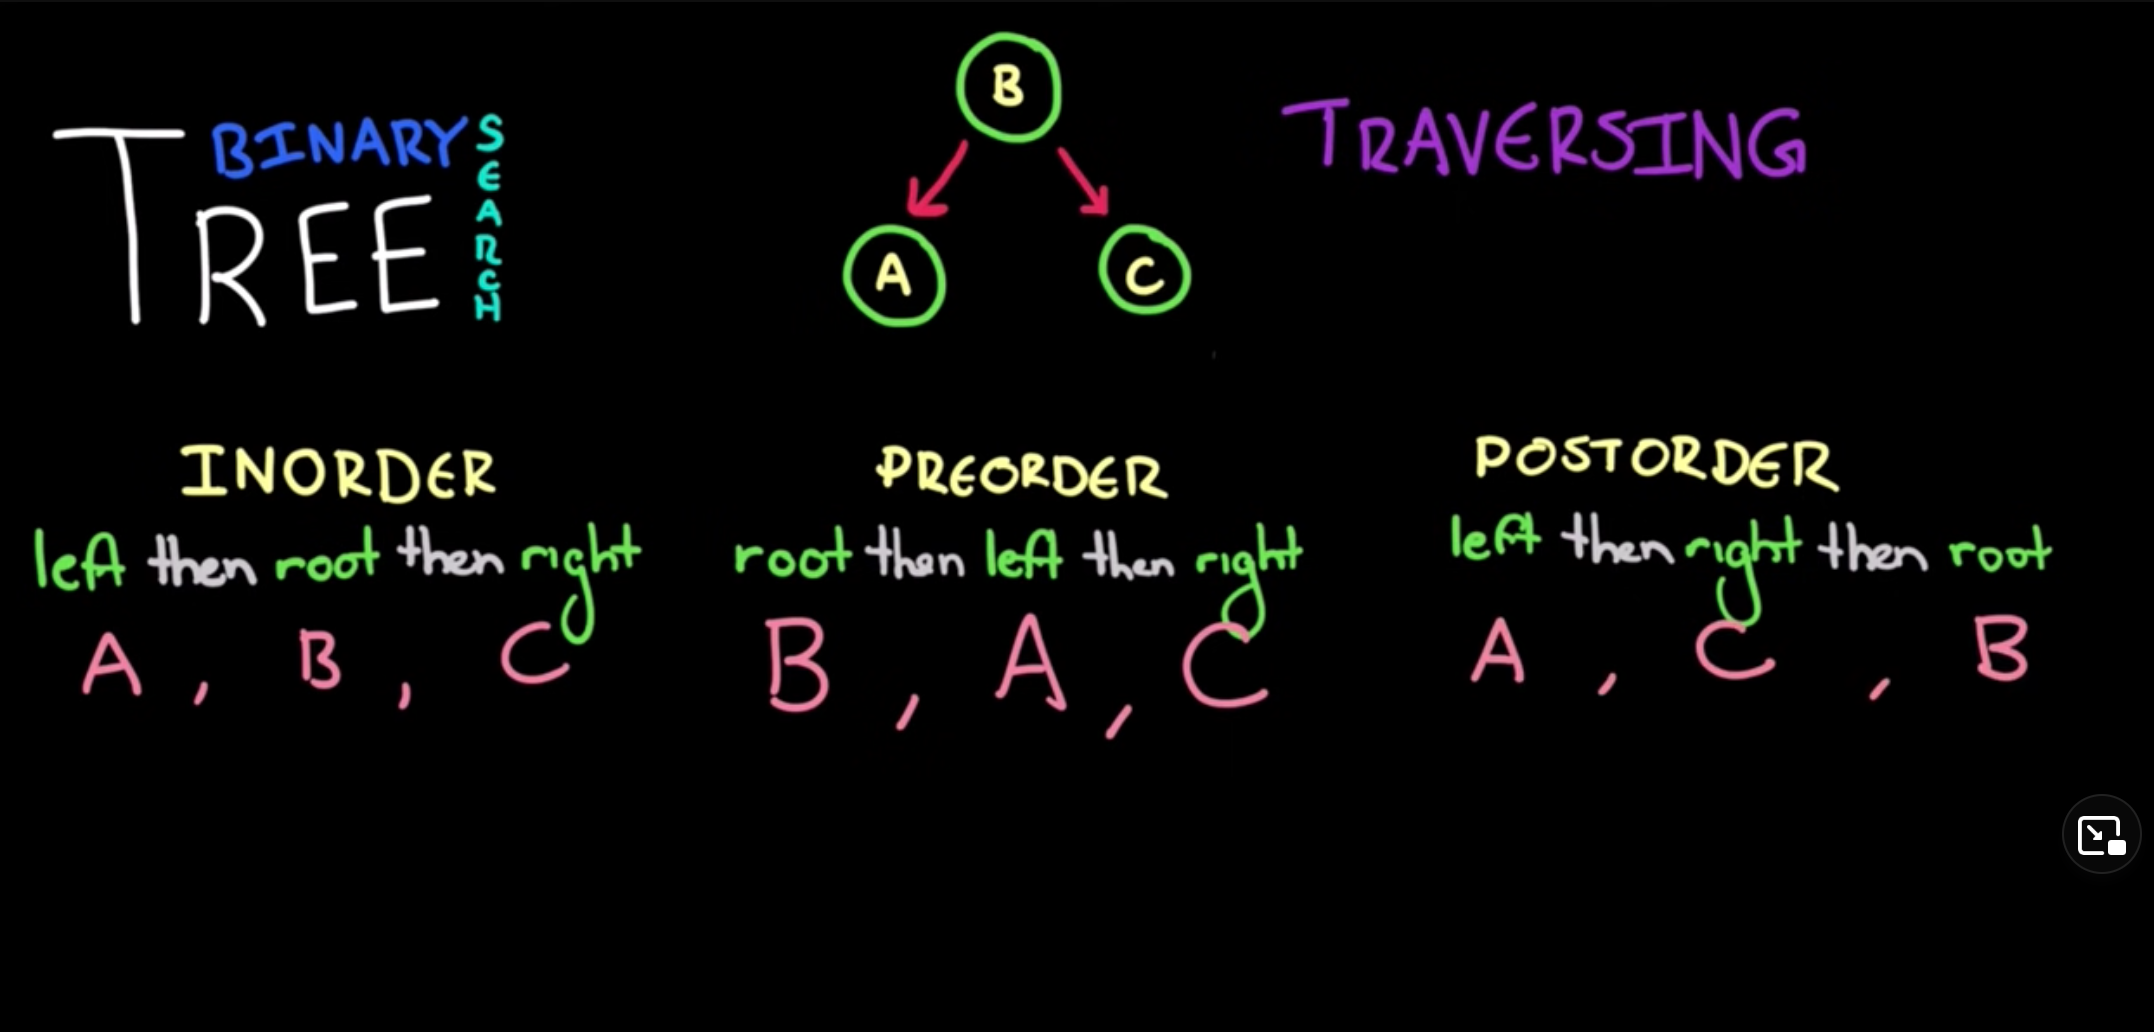 TREE BINARY SEARCH
B
TRAVERSING
A
C
INORDER
left then root then right
A , B , C
PREORDER
root then left then right
B , A , C
POSTORDER
left then right then root
A , C , B